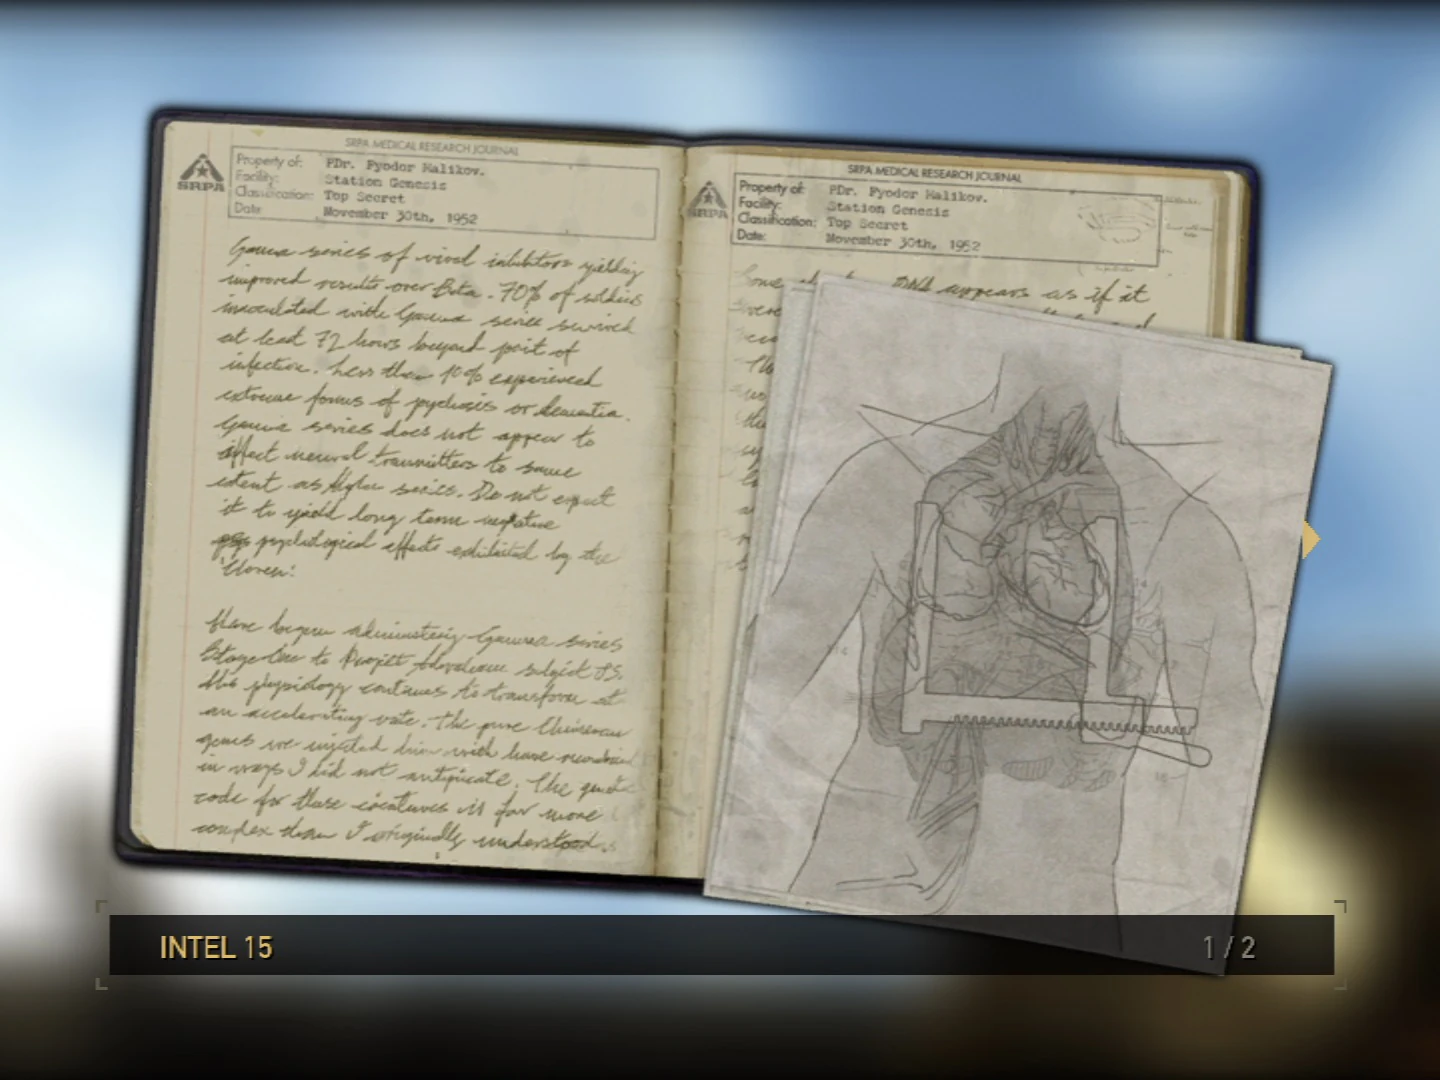 SRPA MEDICAL RESEARCH JOURNAL
SRPA
Property of: PDr. Fyodor Malikov.
Facility: Station Genesis
Classification: Top Secret
Date: November 30th, 1952
Gamma series of viral inhibitors yielding
improved results over Beta. 70% of soldiers
inoculated with Gamma series survived
at least 72 hours beyond point of
infection. Less than 10% experienced
extreme forms of psychosis or dementia.
Gamma series does not appear to
affect neural transmitters to same
extent as Alpha series. Do not expect
it to yield long term negative
psychological effects exhibited by the
Have begun administering Gamma series
Stage One to Project Abraham subject
His physiology continues to transform at
an accelerating rate. The pure Chimeran
genes we injected him with have recombined
in ways I did not anticipate. The genetic
code for these creatures is far more
complex than I originally understood.
SRPA MEDICAL RESEARCH JOURNAL
SRPA
Property of: PDr. Fyodor Malikov.
Facility: Station Genesis
Classification: Top Secret
Date: November 30th, 1952
DNA appears as if it
INTEL 15
1 / 2